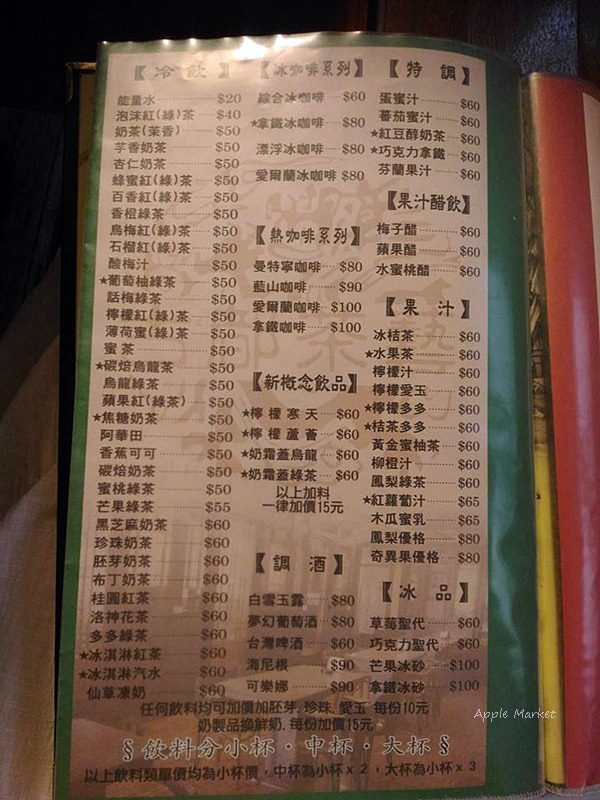 【冷飲】
能量水 $20
泡沫紅(綠)茶 $40
奶茶(茉香) $50
芋香奶茶 $50
杏仁奶茶 $50
蜂蜜紅(綠)茶 $50
百香紅(綠)茶 $50
香橙綠茶 $50
烏梅紅(綠)茶 $50
石榴紅(綠)茶 $50
酸梅汁 $50
★葡萄柚綠茶 $50
話梅綠茶 $50
檸檬紅(綠)茶 $50
薄荷蜜(綠)茶 $50
蜜茶 $50
★碳焙烏龍茶 $50
烏龍綠茶 $50
蘋果紅(綠茶) $50
★焦糖奶茶 $50
阿華田 $50
香蕉可可 $50
碳焙奶茶 $50
蜜桃綠茶 $50
芒果綠茶 $55
黑芝麻奶茶 $60
珍珠奶茶 $60
胚芽奶茶 $60
布丁奶茶 $60
桂圓紅茶 $60
洛神花茶 $60
多多綠茶 $60
★冰淇淋紅茶 $60
★冰淇淋汽水 $60
仙草凍奶 $60
【冰咖啡系列】
綜合冰咖啡 $60
★拿鐵冰咖啡 $80
漂浮冰咖啡 $80
愛爾蘭冰咖啡 $80
【熱咖啡系列】
曼特寧咖啡 $80
藍山咖啡 $90
愛爾蘭咖啡 $100
拿鐵咖啡 $100
【新概念飲品】
★檸檬寒天 $60
★檸檬蘆薈 $60
★奶霜蓋烏龍 $60
★奶霜蓋綠茶 $60
以上加料
一律加價15元
【調酒】
白雪玉露 $80
夢幻葡萄酒 $80
台灣啤酒 $60
海尼根 $90
可樂娜 $90
【特調】
蛋蜜汁 $60
蕃茄蜜汁 $60
★紅豆醇奶茶 $60
★巧克力拿鐵 $60
芬蘭果汁 $60
【果汁醋飲】
梅子醋 $60
蘋果醋 $60
水蜜桃醋 $60
【果汁】
冰桔茶 $60
★水果茶 $60
檸檬汁 $60
檸檬愛玉 $60
★檸檬多多 $60
★桔茶多多 $60
黃金蜜柚茶 $60
柳橙汁 $60
鳳梨綠茶 $60
★紅蘿蔔汁 $65
木瓜蜜乳 $65
鳳梨優格 $80
奇異果優格 $80
【冰品】
草莓聖代 $60
巧克力聖代 $60
芒果冰砂 $100
拿鐵冰砂 $100
任何飲料均可加價加胚芽, 珍珠, 愛玉, 每份10元
奶製品換鮮奶, 每份加價15元
§飲料分小杯・中杯・大杯§
以上飲料類單價均為小杯價，中杯為小杯 x 2，大杯為小杯 x 3
Apple Market